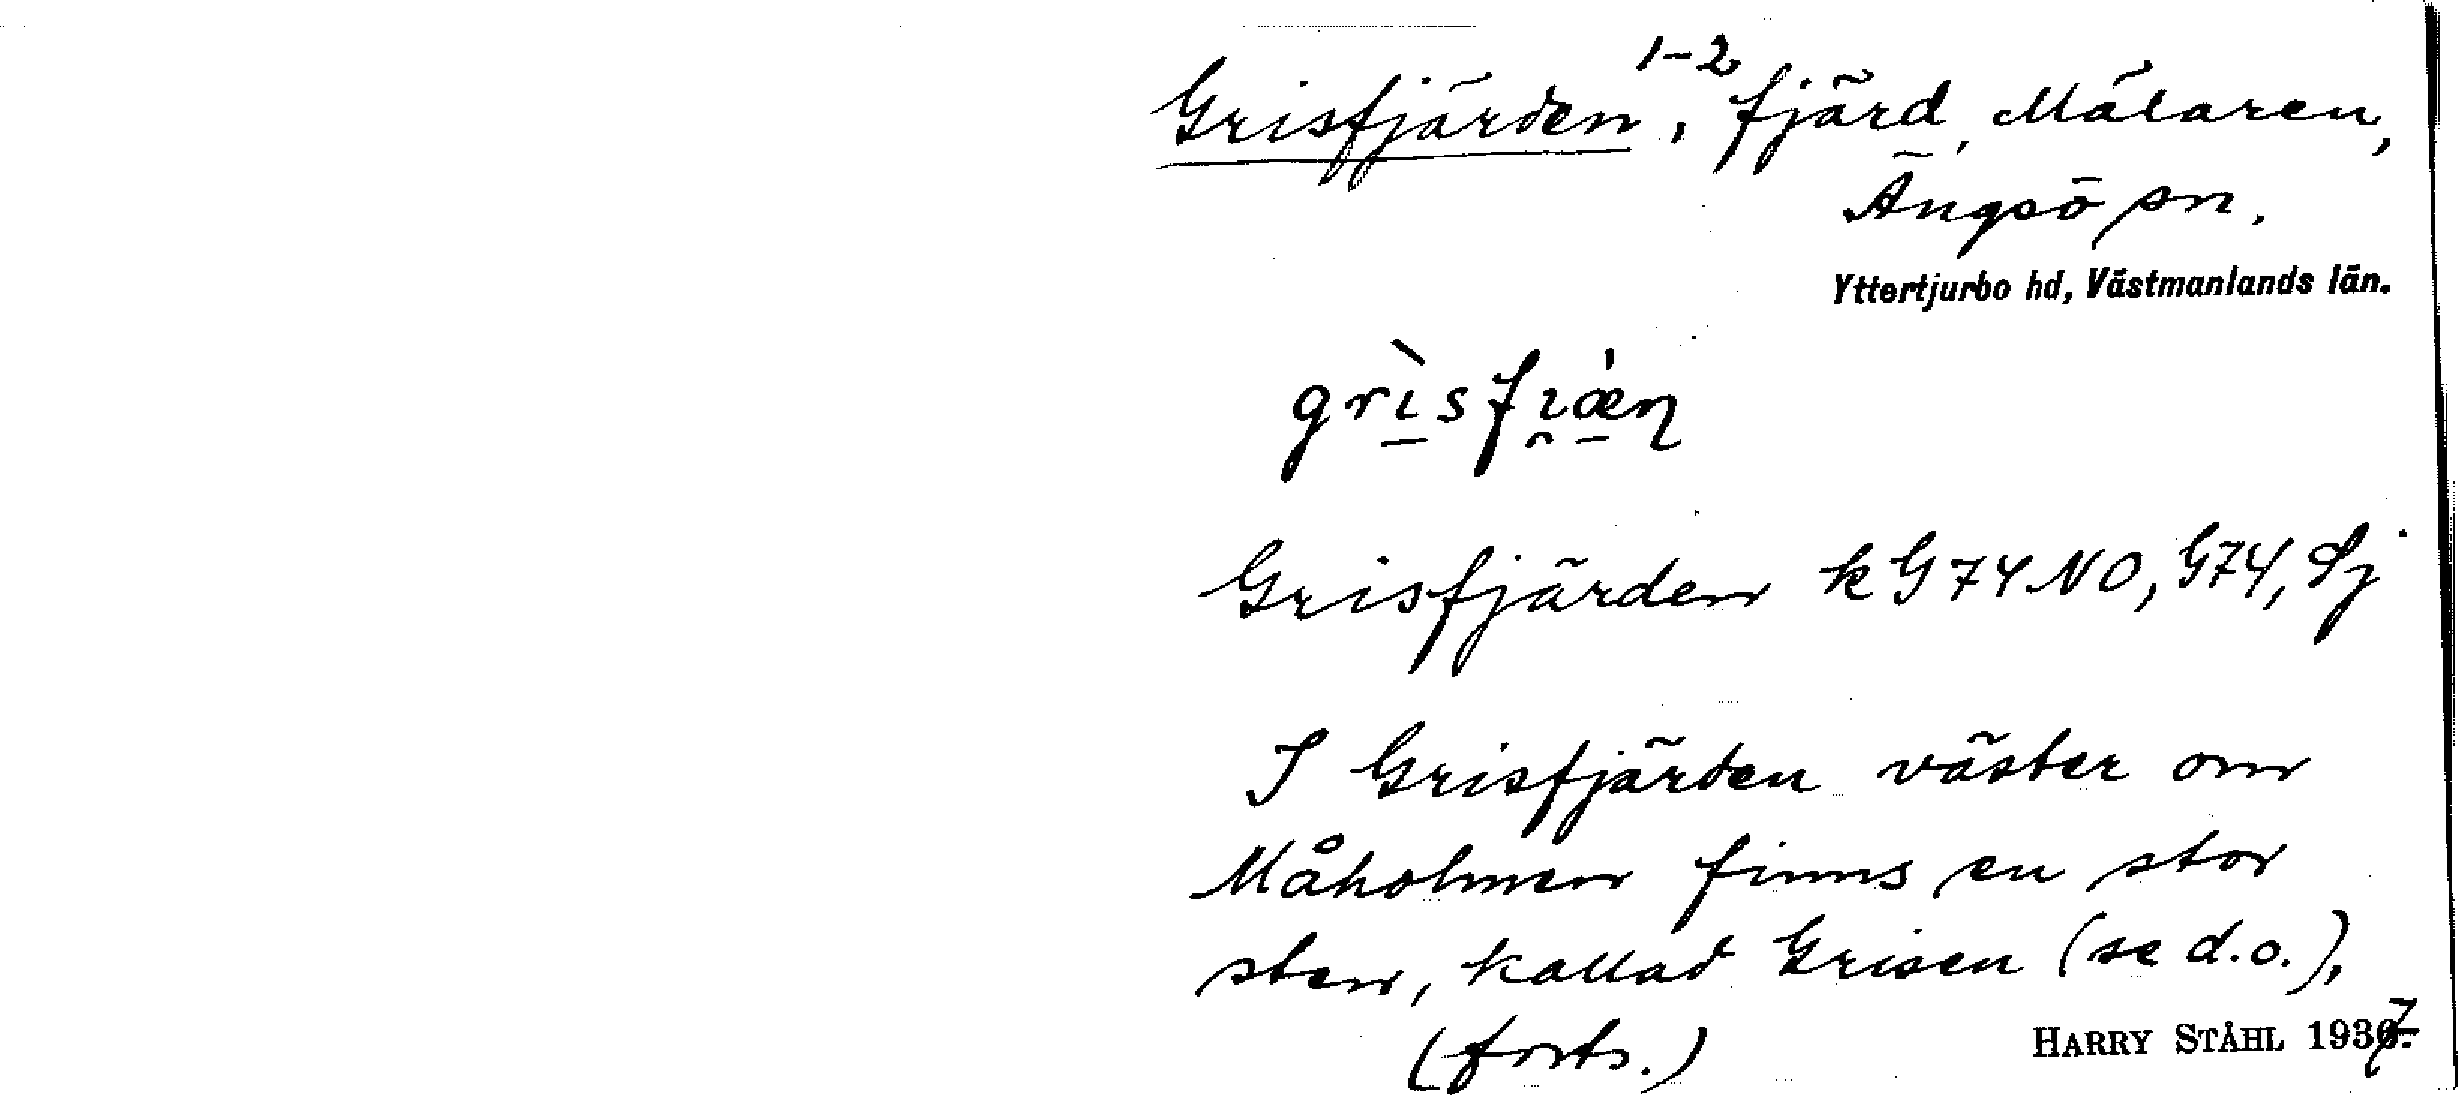 Grisfjärden 1-2, fjärd, Mälaren,
Ängsö sn.
Yttertjurbo hd, Västmanlands län.
grì̱sfı̯ǽ̱ɳ
Grisfjärden k G74NO, G74, Sj
I Grisfjärden väster om
Måholmen finns en stor
sten, kallad Grisen (se d.o.),
(forts.)
HARRY STÅHL 1937